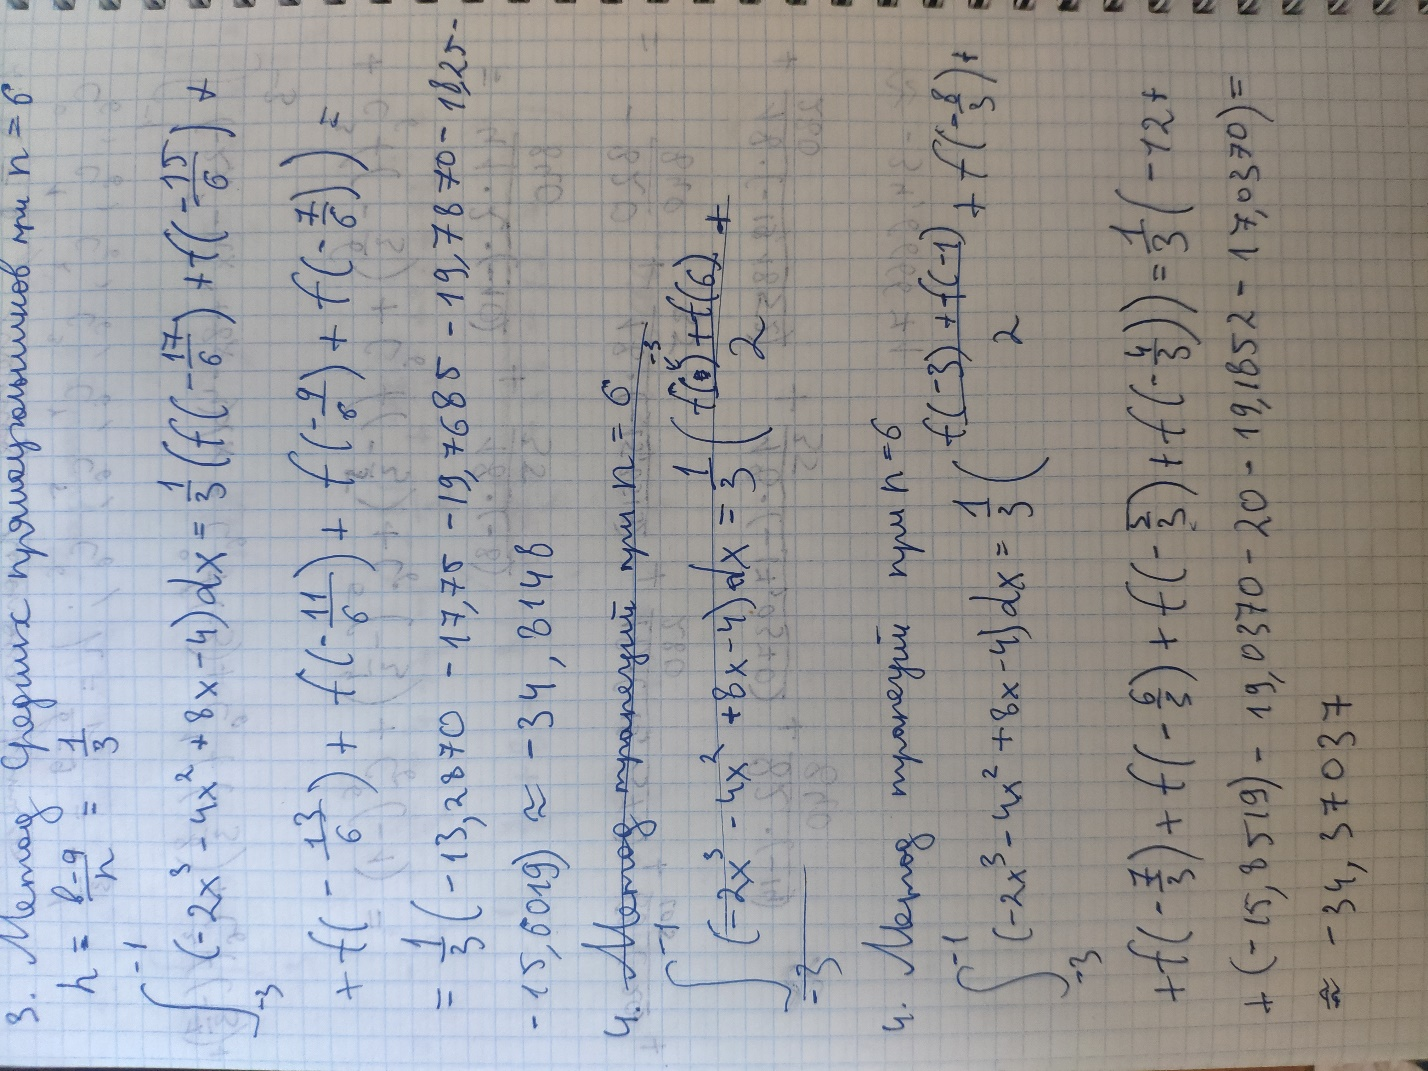 3. Метод средних прямоугольников при n = 6
h = \frac{b-a}{n} = \frac{1}{3}
\int_{-3}^{-1} (-2x^3 - 4x^2 + 8x - 4)dx = \frac{1}{3}(f(-\frac{17}{6}) + f(-\frac{15}{6}) +
+ f(-\frac{13}{6}) + f(-\frac{11}{6}) + f(-\frac{9}{6}) + f(-\frac{7}{6})) =
= \frac{1}{3}(-13,2870 - 17,75 - 19,7685 - 19,7870 - 18,25 -
- 15,6019) ≈ -34,8148
4. Метод трапеций при n = 6
\int_{-3}^{-1} (-2x^3 - 4x^2 + 8x - 4)dx = \frac{1}{3}(\frac{f() + f(6)}{2} +
4. Метод трапеций при n = 6
\int_{-3}^{-1} (-2x^3 - 4x^2 + 8x - 4)dx = \frac{1}{3}(\frac{f(-3) + f(-1)}{2} + f(-\frac{8}{3}) +
+ f(-\frac{7}{3}) + f(-\frac{6}{3}) + f(-\frac{5}{3}) + f(-\frac{4}{3})) = \frac{1}{3}(-12 +
+ (-15,8519) - 19,0370 - 20 - 19,1852 - 17,0370) =
≈ -34,37037